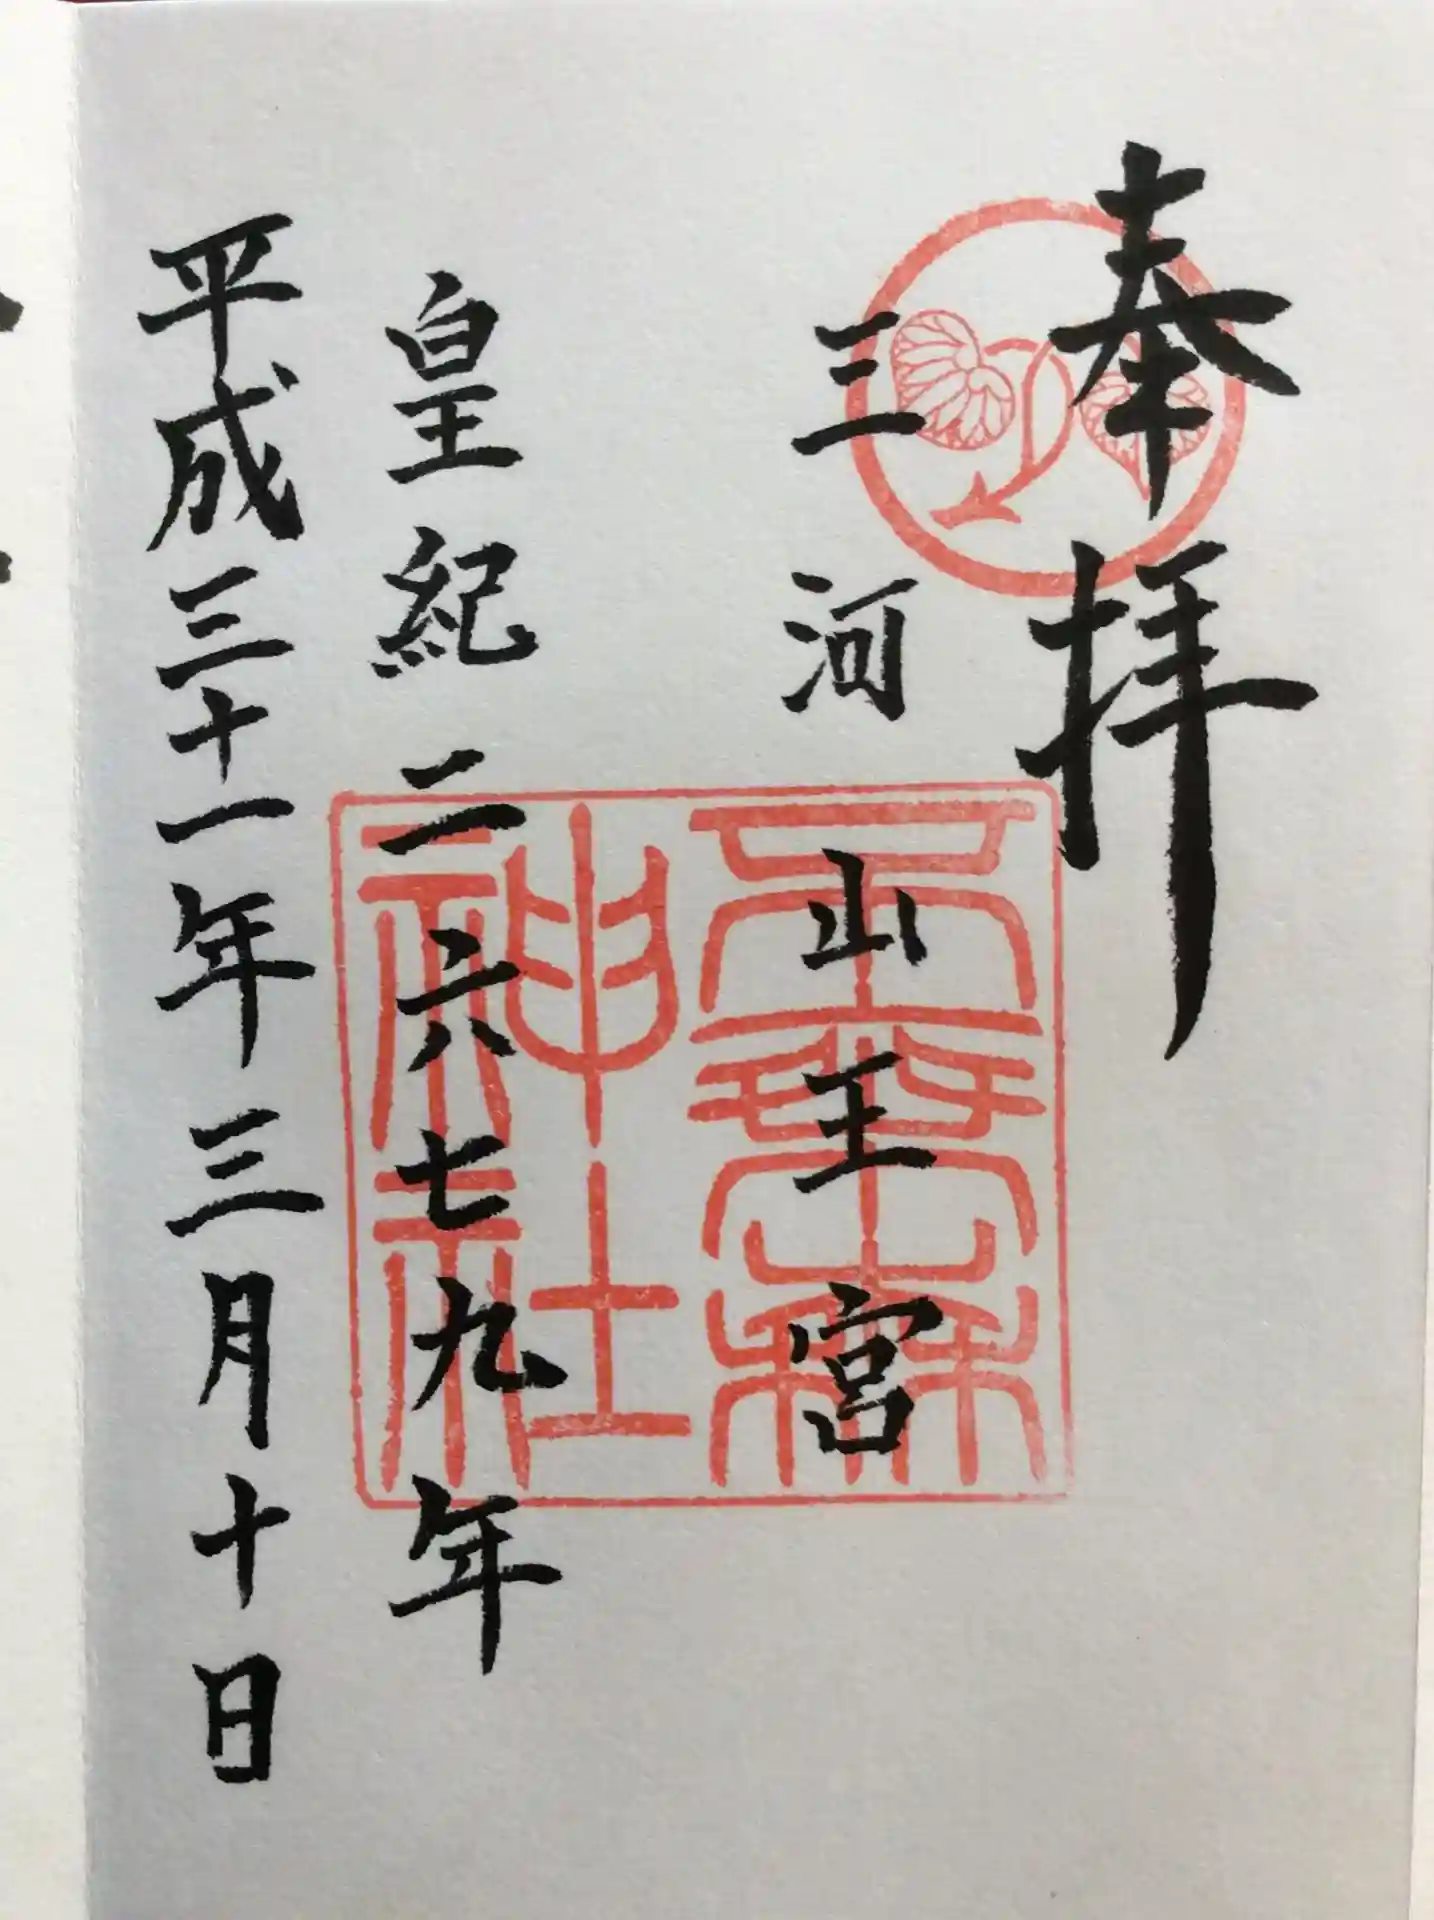 奉拝
三河山王宮
神社
皇紀二六七九年
平成三十一年三月十日